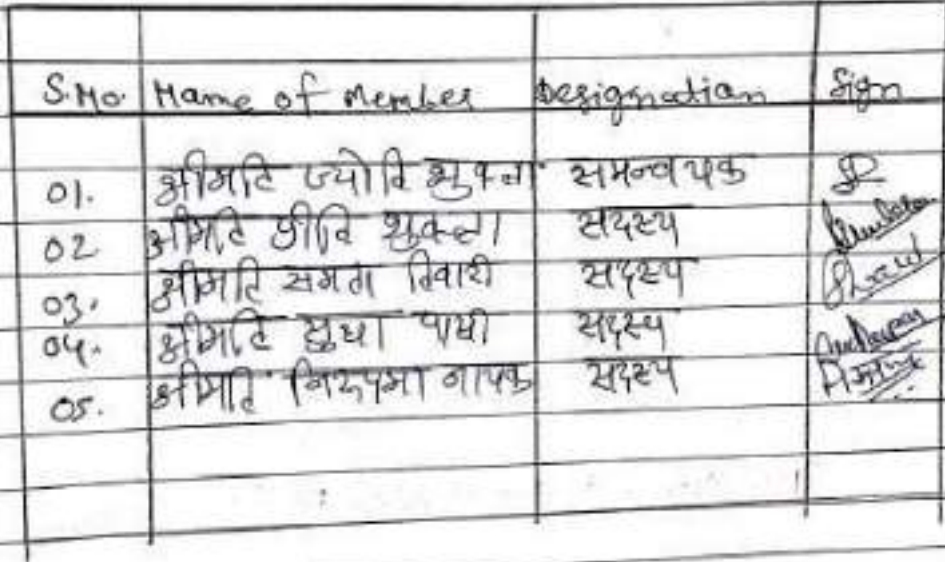 S.No. Name of Member Designation Sign
01. श्रीमति ज्योति शुक्ला समन्वयक
02 श्रीमति प्रीति शुक्ला सदस्य
03. श्रीमति तिवारी सदस्य
04. श्रीमति सुधा सदस्य
05. श्रीमति निरूपमा नायक सदस्य